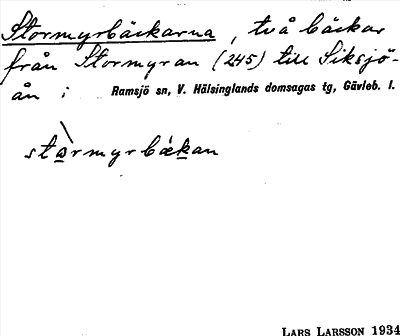 Stormyrbäckarna, två bäckar
från Stormyran (245) till Siksjö-
ån; Ramsjö sn, V. Hälsinglands domsagas tg, Gävleb. l.
stɷ̀rmyrbä́kan
LARS LARSSON 1934